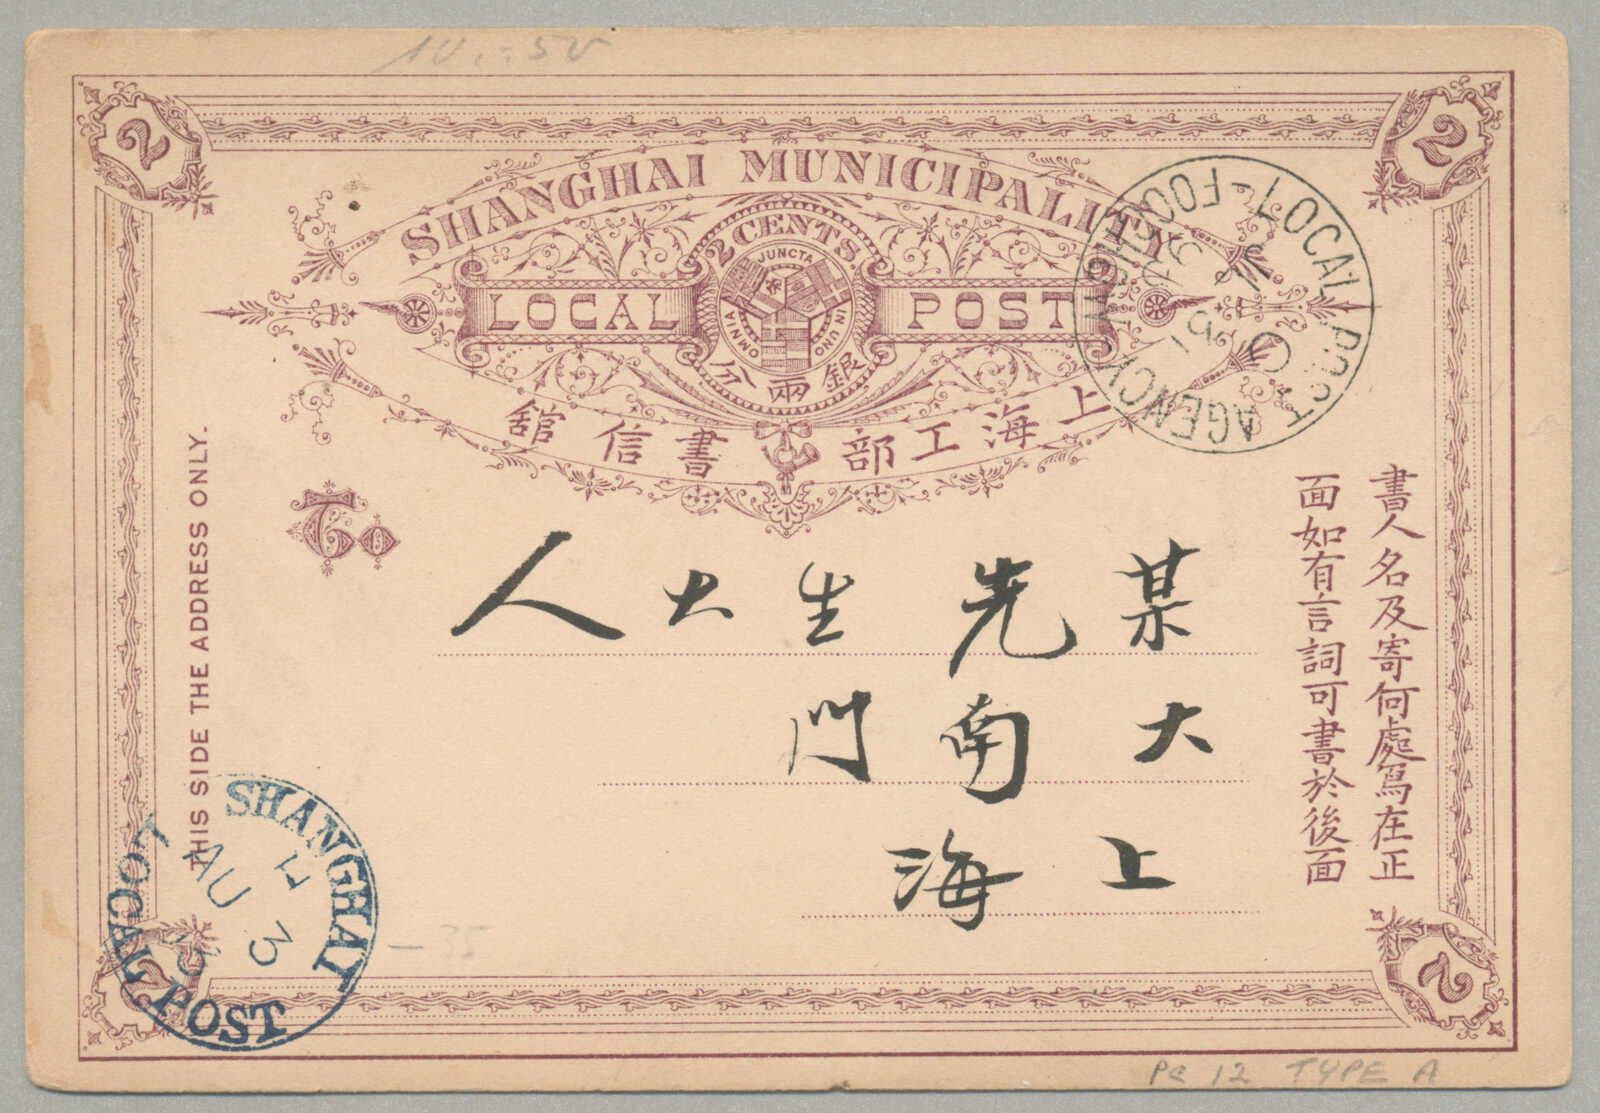 10.-50
2
2
SHANGHAI MUNICIPALITY
2 CENTS.
LOCAL POST
OMNIA JUNCTA IN UNO
銀兩分
上海工部書信舘
To
LOCAL POST AGENCY
書人名及寄何處寫在正
面如有言詞可書於後面
某先生大人
大南門
上海
THIS SIDE THE ADDRESS ONLY.
SHANGHAI LOCAL POST
H
AU 3
93
- 35
2
2
PC 12 TYPE A